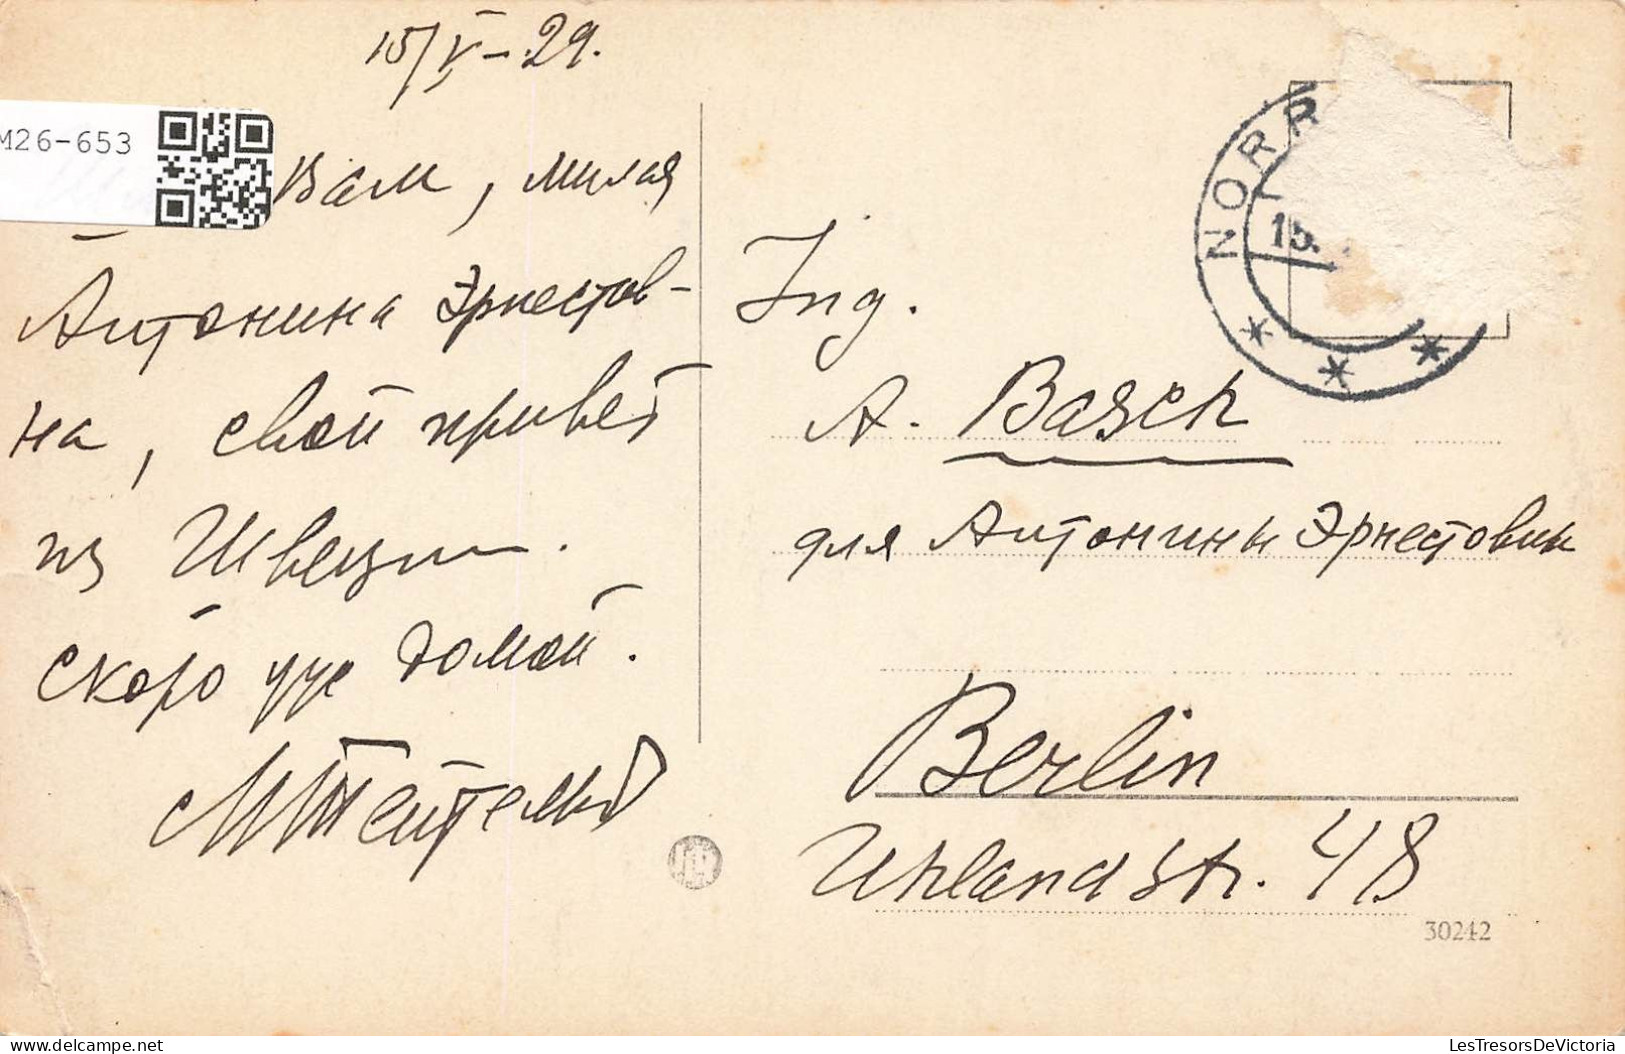 15/V–29.
M26-653
Вам, милая
Антонина Эрнестов-
на, свой привет
из Швеции.
Скоро уже домой.
NORR
15.
Ing.
A. Basch
для Антонины Эрнестовны
Berlin
Uhlandstr. 48
30242
delcampe.net
LesTresorsDeVictoria